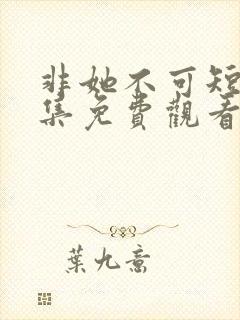 非她不可短
集免費觀看
葉九意